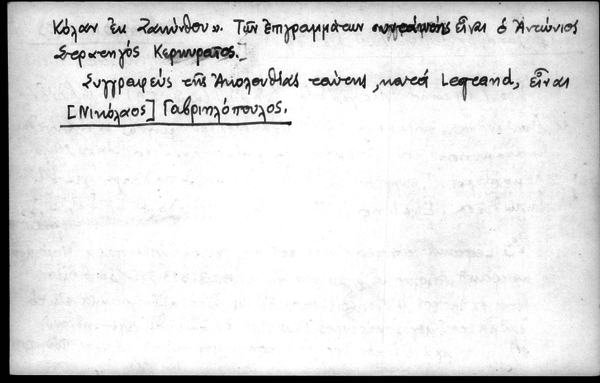 Κόλαν ἐκ Ζακύνθου». Τῶν ἐπιγραμμάτων συγγραφεὺς εἶναι ὁ Ἀντώνιος
Στρατηγός Κερκυραῖος.
Συγγραφεύς τῆς Ἀκολουθίας ταύτης, κατά Legrand, εἶναι
[Νικόλαος] Γαβριηλόπουλος.